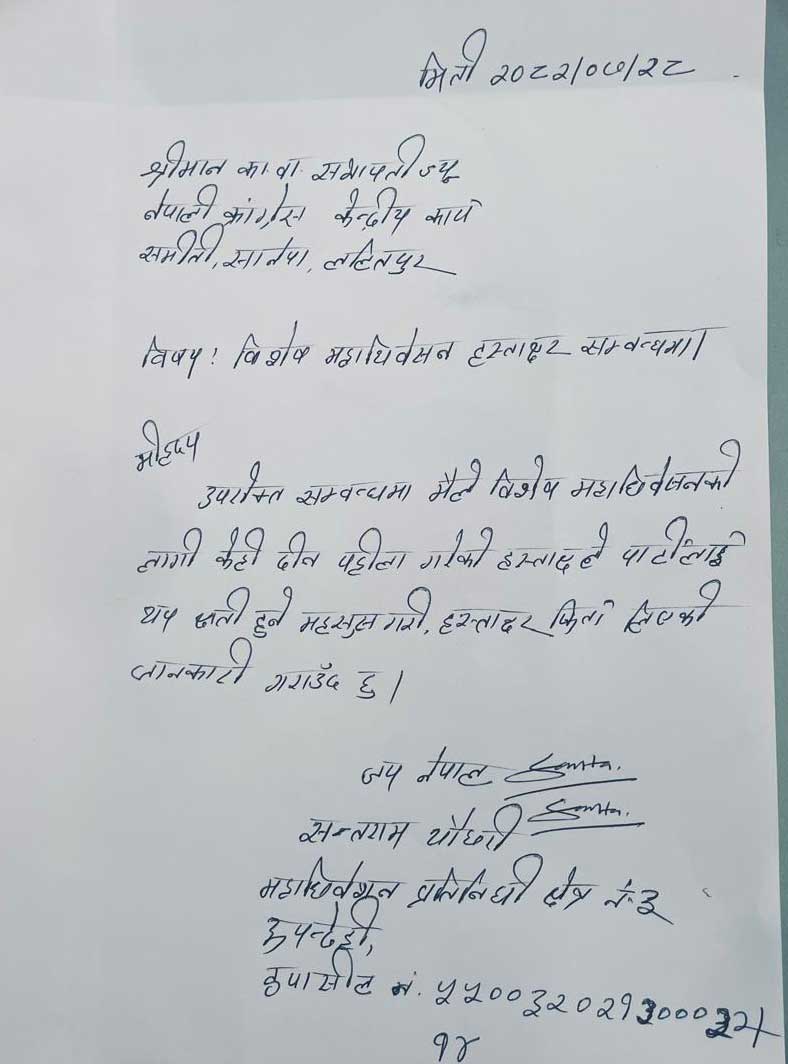 मिती २०८२/०७/२८
श्रीमान का.वा. सभापती ज्यू
नेपाली कांग्रेस केन्द्रीय कार्य
समीती, सानेपा, ललितपुर
विषय: विशेष महाधिवेसन हस्ताक्षर सम्वन्धमा।
मोहदय
उपरोक्त सम्वन्धमा मैले विशेष महाधिवेशनको
लागी केही दीन पहीला गरेको हस्ताक्षरले पार्टीलाई
थप क्षती हुने महसुस गरी, हस्ताक्षर फिर्ता लिएको
जानकारी गराउँद छु।
जय नेपाल
सन्तराम चौधरी
महाधिवेशन प्रतिनिधी क्षेत्र नं. ३
रुपन्देही,
क्रपासील नं.
१४